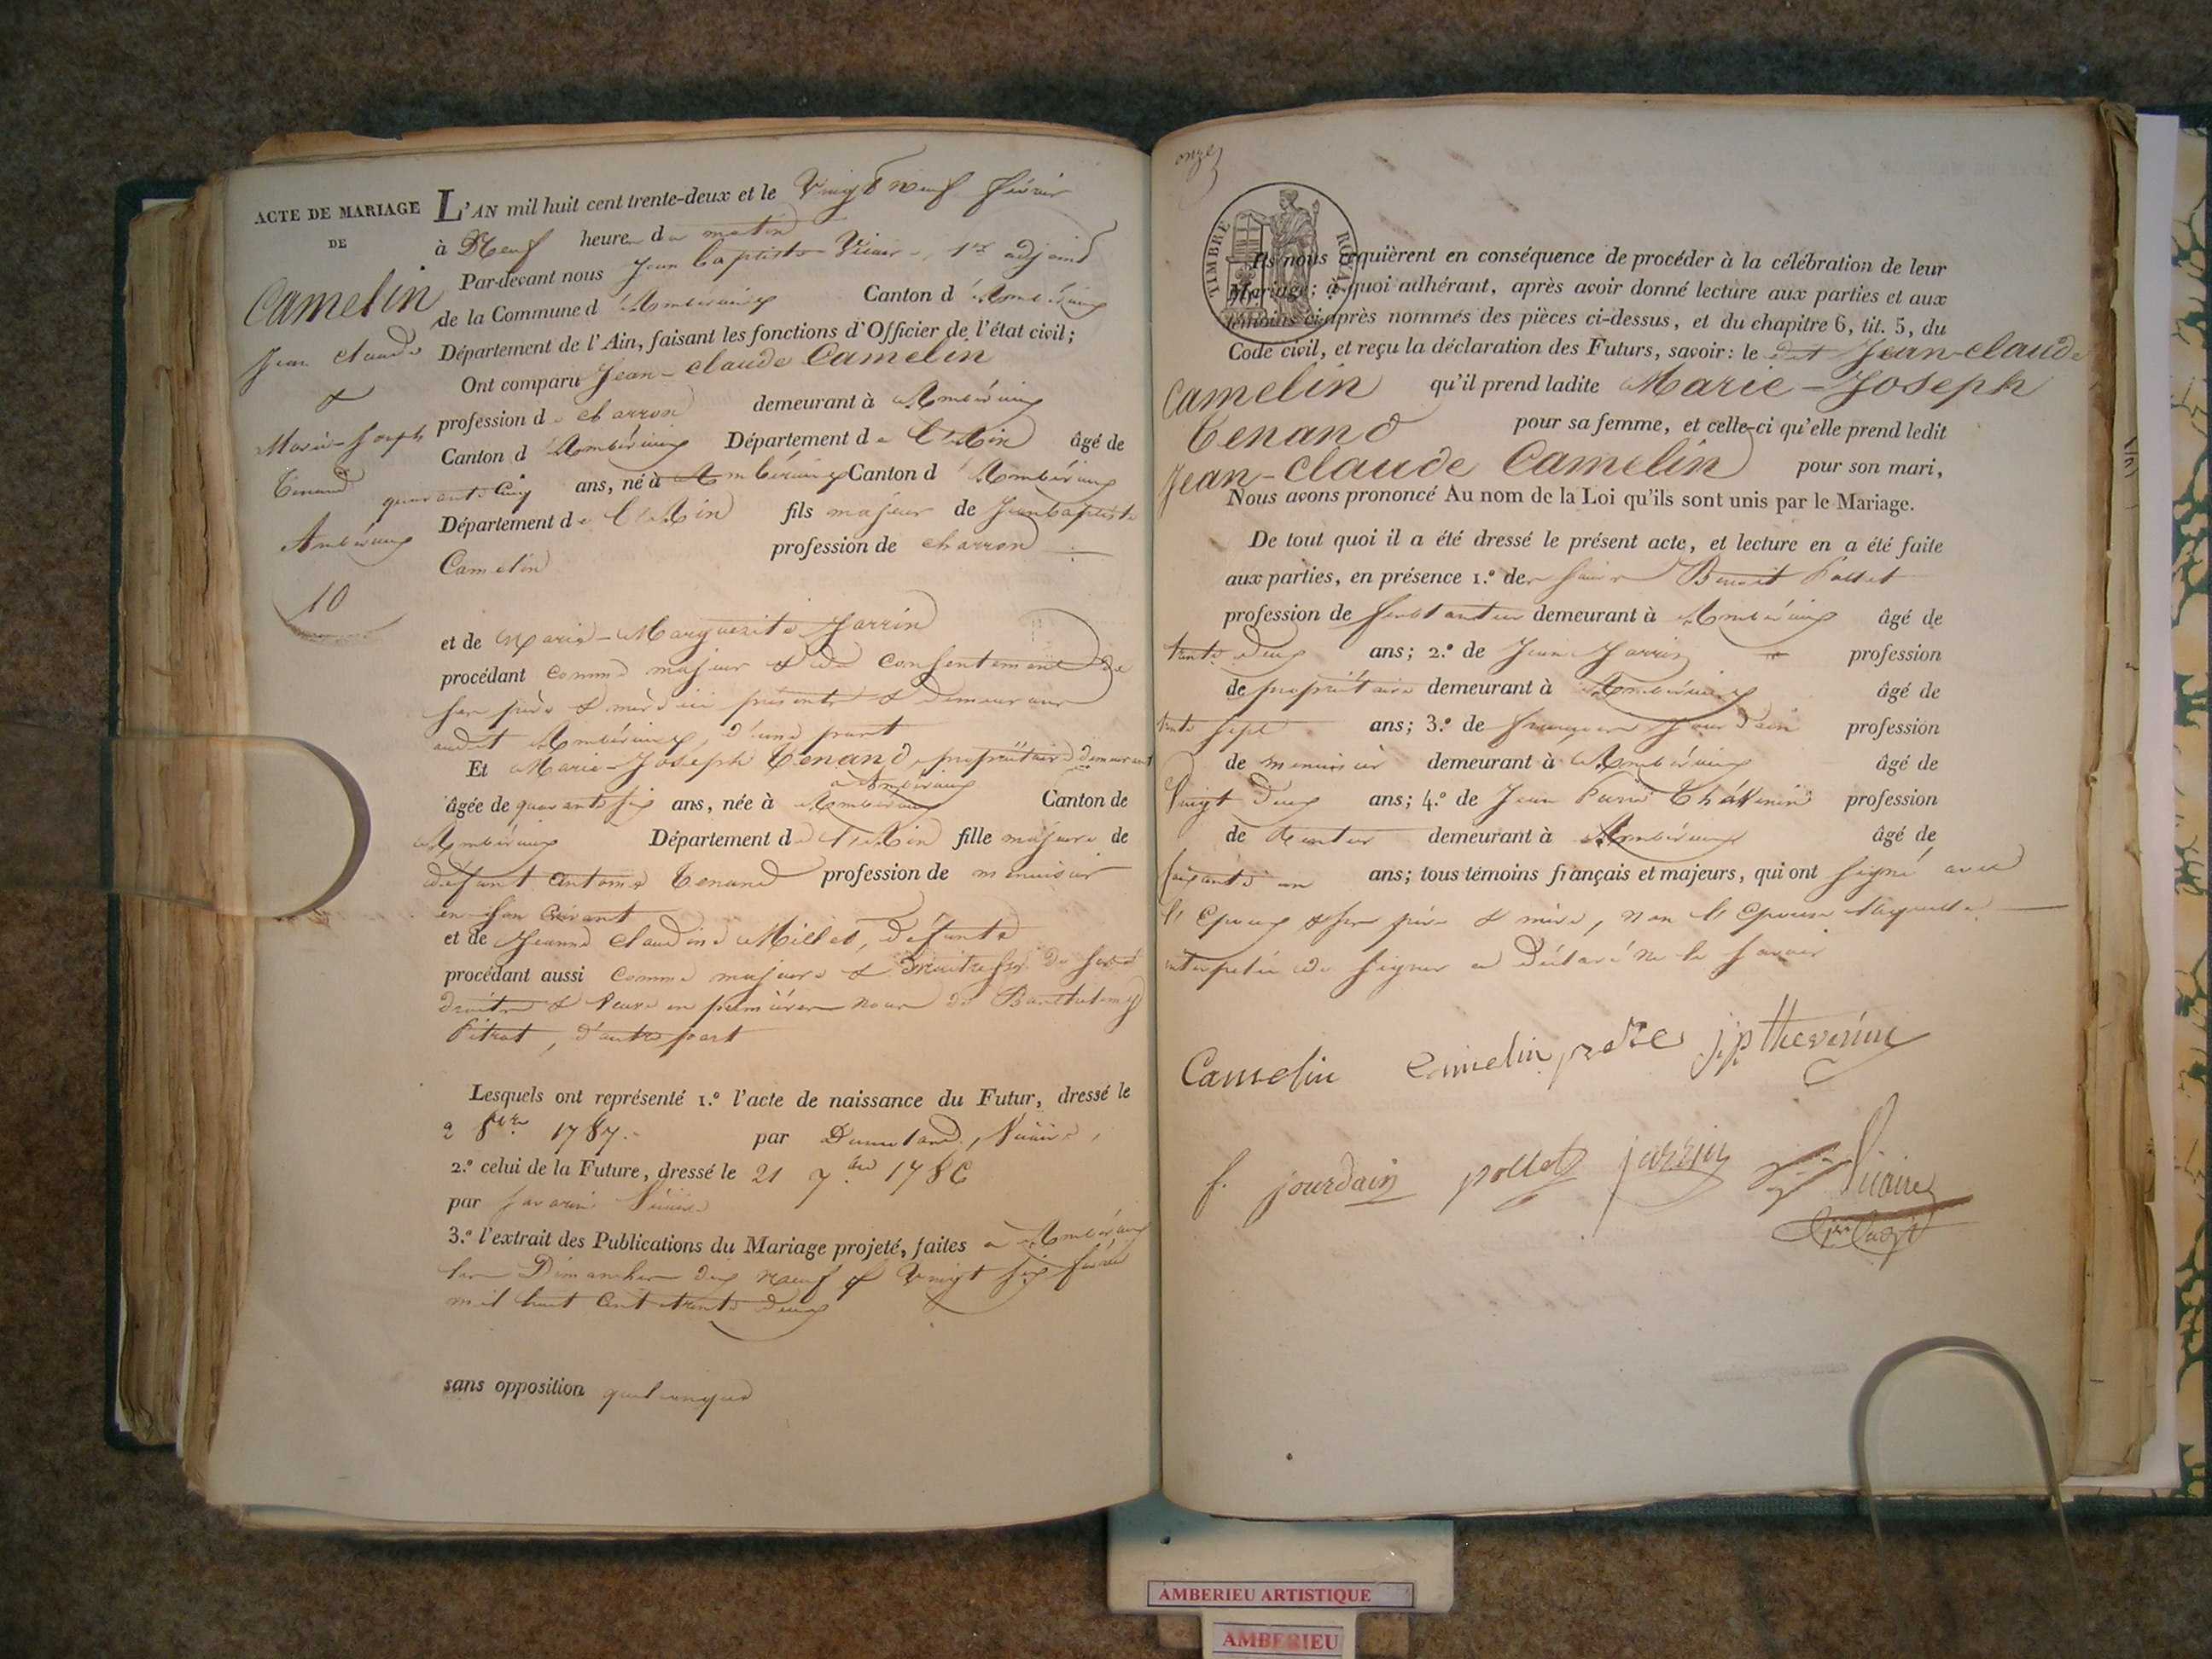 ACTE DE MARIAGE
DE
Camelin
Jean Claude
&
Marie-Joseph
Tenand
Ambérieux
10
L'AN mil huit cent trente-deux et le Vingt neuf février
à Neuf heures du matin
Par-devant nous Jean baptiste Vicaire, 1er adjoint
de la Commune d'Ambérieux Canton d'Ambérieux
Département de l'Ain, faisant les fonctions d'Officier de l'état civil;
Ont comparu Jean-claude Camelin
profession de charron demeurant à Ambérieux
Canton d'Ambérieux Département de l'Ain âgé de
quarante cinq ans, né à Ambérieux Canton d'Ambérieux
Département de l'Ain fils majeur de Jean baptiste
Camelin profession de charron
et de Marie-Marguerite Jarrin
procédant comme majeur & du consentement de
ses père & mère ici présents & demeurans
audit Ambérieux, d'une part
Et Marie-Joseph Tenand, propriétaire demeurant
à Ambérieux
âgée de quarante six ans, née à Ambérieux Canton de
Ambérieux Département de l'Ain fille majeure de
défunt Antoine Tenand profession de menuisier
en son vivant
et de Jeanne Claudine Millet, défunte
procédant aussi comme majeure & maitresse de ses
droits & veuve en premières noces de Barthelemy
Pitrat, d'autre part
Lesquels ont représenté 1.º l'acte de naissance du Futur, dressé le
2 8bre 1787. par Vicaire,
2.º celui de la Future, dressé le 21 7bre 1786
par Savarin Vicaire
3.º l'extrait des Publications du Mariage projeté, faites à Ambérieux
les Dimanches dix neuf & Vingt six février
mil huit cent trente deux
sans opposition quelconque
onze
TIMBRE ROYAL
Ils nous requièrent en conséquence de procéder à la célébration de leur
Mariage; à quoi adhérant, après avoir donné lecture aux parties et aux
témoins ci-après nommés des pièces ci-dessus, et du chapitre 6, tit. 5, du
Code civil, et reçu la déclaration des Futurs, savoir: le dit Jean-claude
Camelin qu'il prend ladite Marie-Joseph
Tenand pour sa femme, et celle-ci qu'elle prend ledit
Jean-Claude Camelin pour son mari,
Nous avons prononcé Au nom de la Loi qu'ils sont unis par le Mariage.
De tout quoi il a été dressé le présent acte, et lecture en a été faite
aux parties, en présence 1.º des sieurs Benoit Pollet
profession de demeurant à Ambérieux âgé de
trente deux ans; 2.º de Jean Jarrin profession
de propriétaire demeurant à Ambérieux âgé de
trente sept ans; 3.º de françois Jourdain profession
de menuisier demeurant à Ambérieux âgé de
Vingt deux ans; 4.º de Jean Pierre Thévenin profession
de Rentier demeurant à Ambérieux âgé de
soixante un ans; tous témoins français et majeurs, qui ont signé avec
l'Epoux & ses père & mère, non l'Epouse laquelle
interpelée de signer a déclaré ne le savoir
Camelin Camelin père jp thevenin
f. jourdain pollet jarrin Vicaire
AMBERIEU ARTISTIQUE
AMBERIEU